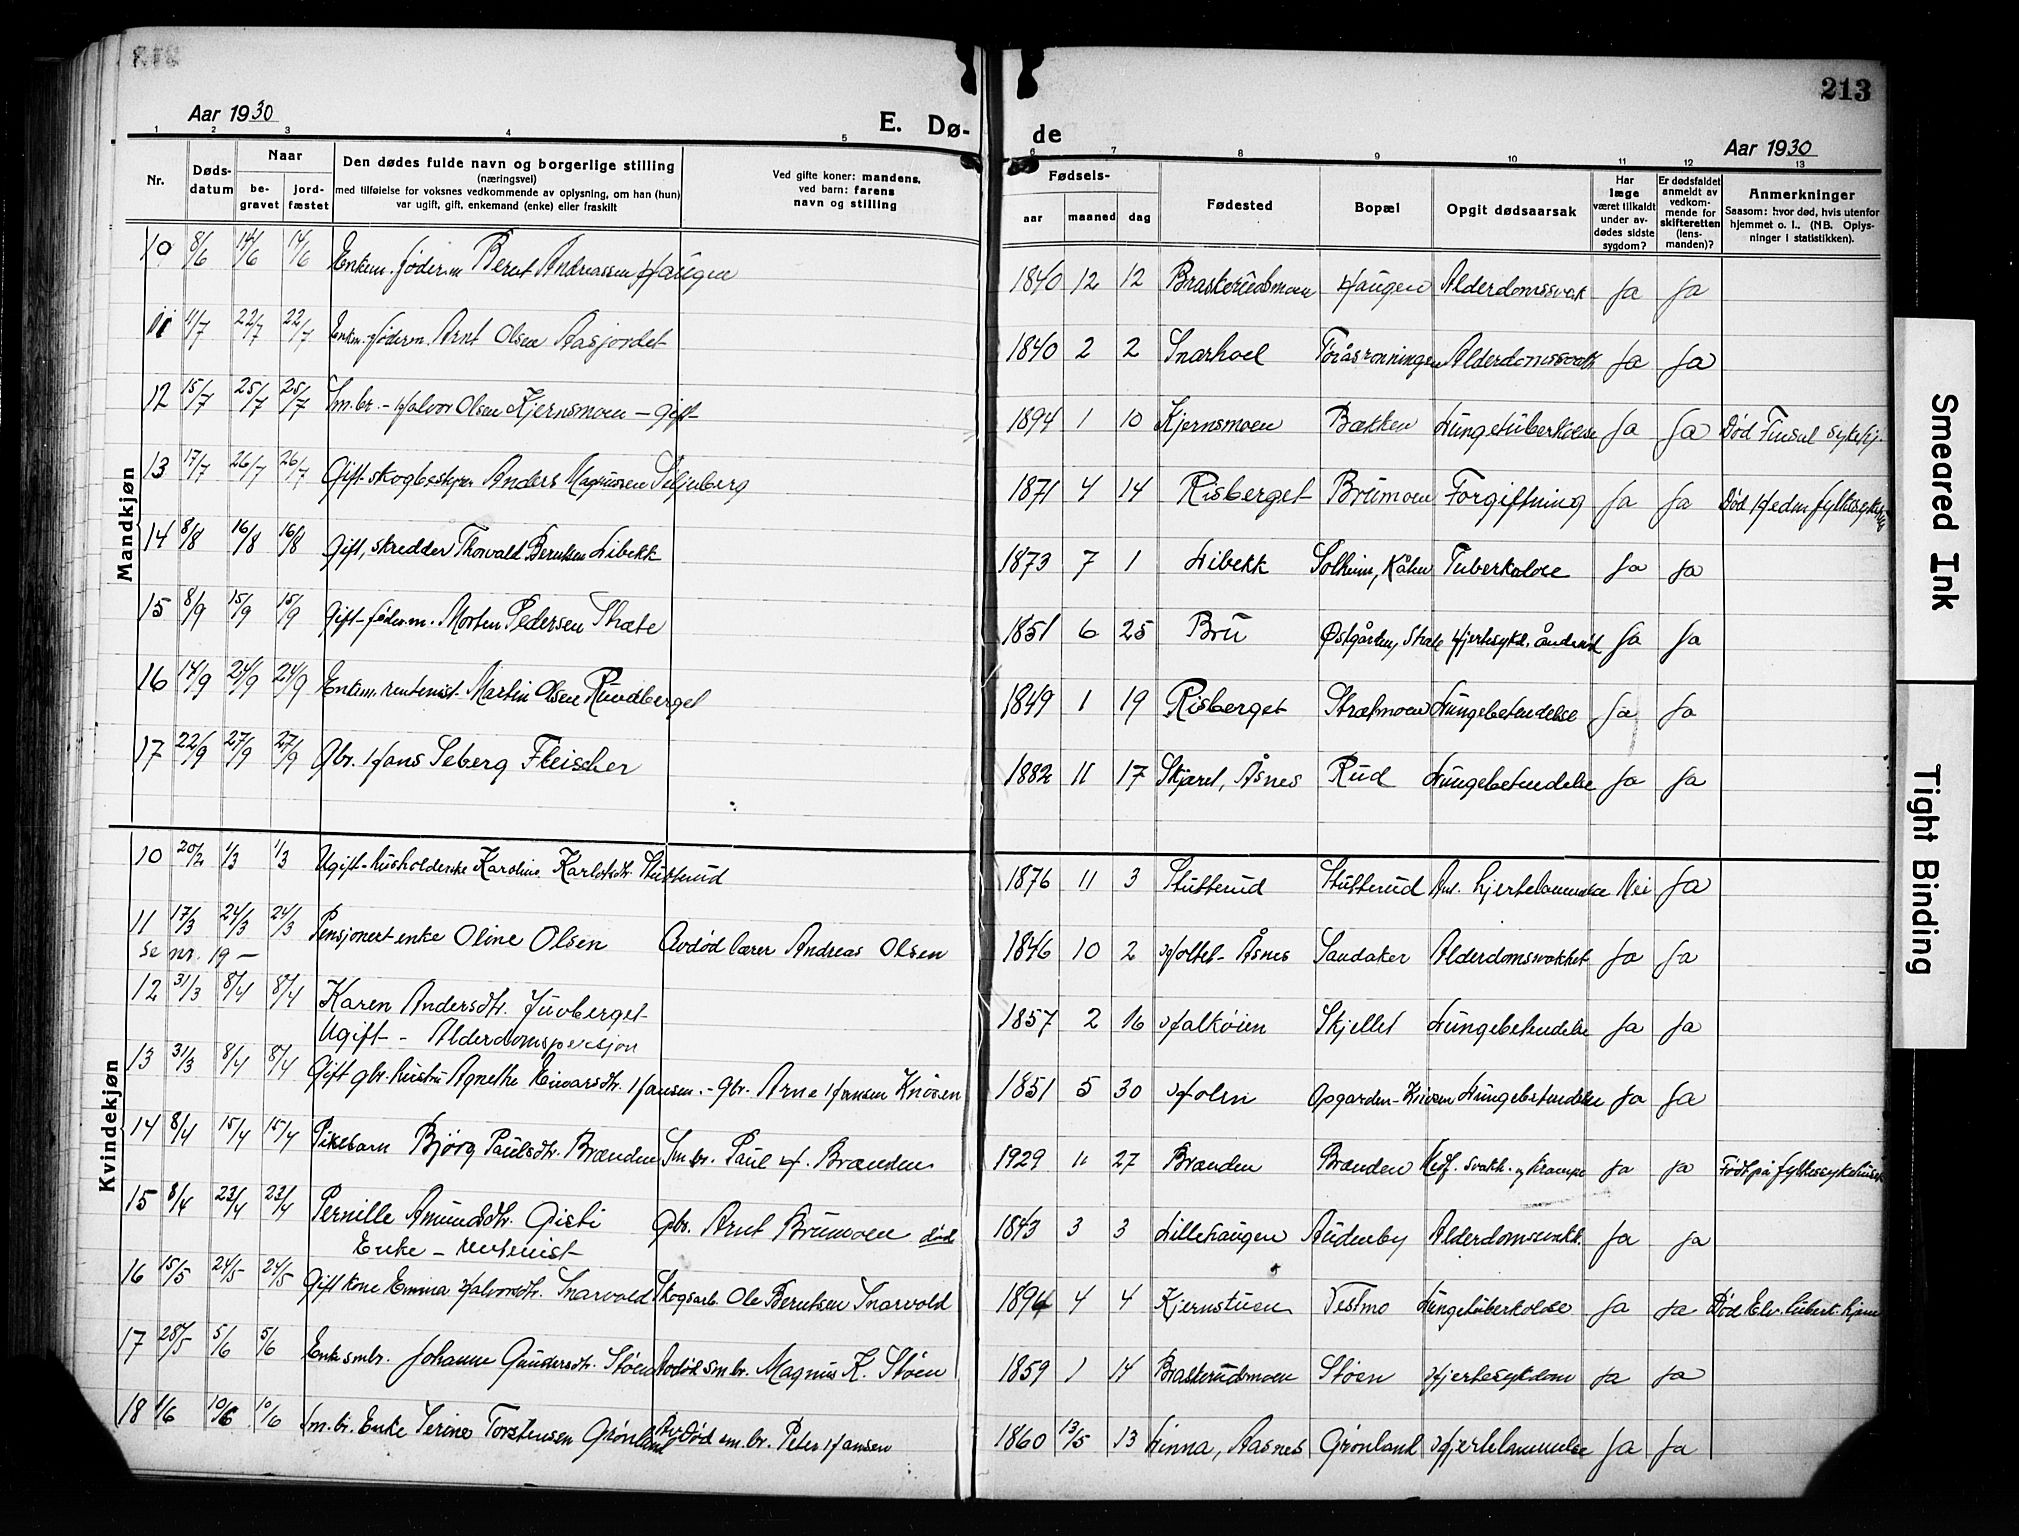 213
Aar 1930
E. Dø-
de
Aar 1930
1 2 3 4 5 6 7 8 9 10 11 12 13
Nr. Dødsdatum Naar begravet jordfæstet
Den dødes fulde navn og borgerlige stilling
(næringsvei)
med tilføielse for voksnes vedkommende av oplysning, om han (hun)
var ugift, gift, enkemand (enke) eller fraskilt
Ved gifte koner: mandens,
ved barn: farens
navn og stilling
Fødsels-
aar maaned dag
Fødested Bopæl Opgit dødsaarsak
Har læge været tilkaldt under avdødes sidste sygdom?
Er dødsfaldet anmeldt av vedkommende for skifteretten (lensmanden)?
Anmerkninger
Saasom: hvor død, hvis utenfor hjemmet o. l.. (NB. Oplysninger i statistikken).
Mandkjøn
10 8/6 14/6 14/6 Enkem. føderm Bernt Andreassen Haugen 1840 12 12 Braskerudsmoen Haugen Alderdomssvak Ja Ja
11 11/7 22/7 22/7 Enkem. føderm. Arnt Olsen Aasjordet 1840 2 2 Snarhoel Alderdomssvakh Ja Ja
12 15/7 25/7 25/7 Sm.br. - Halvor Olsen Kjernsmoen - gift 1894 1 10 Kjernsmoen Bækken Lungetuberkolose Ja Ja Død Tinsul sykehj.
13 17/7 26/7 26/7 Gift skogbestyrer Anders Magnussen Siljuberg 1871 4 14 Risberget Brumoen Forgiftning Ja Ja Død Hedm fylkessykehus
14 8/8 16/8 16/8 Gift, skredder Thorvald Berntsen Libekk 1873 7 1 Libekk Solheim, Kåten Tuberkolose Ja Ja
15 8/9 15/9 15/9 Gift - føderm. Morten Pedersen Strate 1851 6 25 Bru Østgården, Strate Hjertesykd. åndenød Ja Ja
16 14/9 24/9 24/9 Enkem. rentenist Martin Olsen Ruudberget 1849 1 19 Risberget Strætmoen Lungebetendelse Ja Ja
17 22/9 27/9 27/9 Gbr. Hans Seberg Fleischer 1882 11 17 Skjæret, Åsnes Rud Lungebetendelse Ja Ja
Kvindekjøn
10 20/2 1/3 1/3 Ugift - husholderske Karoline Karlsdtr. Stutterud 1876 11 3 Stutterud Stutterud Ant. hjertelammelse Nei Ja
11 17/3 24/3 24/3 Pensjonert enke Oline Olsen Avdød lærer Andreas Olsen 1846 10 2 Holtet - Åsnes Sandaker Alderdomsvakhet Ja Ja
se nr. 19 -
12 31/3 8/4 8/4 Karen Andersdtr. Juvberget 1857 2 16 Halkøien Skjellet Lungebetendelse Ja Ja
Ugift - Alderdomspersjon
13 31/3 8/4 8/4 Gift gbr. hustru Agnethe Eivarsdtr. Hansen. - Gbr. Arne Hansen Knøsen 1851 5 30 Holen Opgarden - Knøsen Lungebetendelse Ja Ja
14 8/4 15/4 15/4 Pikebarn Bjørg Paulsdtr. Brænden Sm.br. Paul H. Brænden 1929 11 27 Brænden Brænden Medf. svakh. og krampe Ja Ja Født på fylkessykehuset
15 8/4 23/4 23/4 Pernille Amundsdtr. Gisti Gbr. Arnt Brumoen død 1843 3 3 Lillehaugen Audenby Alderdomssvakh. Ja Ja
Enke - rentenist
16 15/5 24/5 24/5 Gift kone Emma Halvorsdtr. Snarvold Skogsarb. Ole Berntsen Snarvold 1894 4 4 Kjernstuen Vestmo Lungetuberkolose Ja Ja Død Elv. tuberk. hjem
17 28/5 5/6 5/6 Enke smbr. Johanne Gundersdtr. Støen Avdød sm.br. Magnus K. Støen 1859 1 14 Braskerudsmoen Støen Hjertesykdom Ja Ja
18 1/6 10/6 10/6 Sm.br. Enke Serine Torstensen Grønland Avdød sm.br. Peter Hansen 1860 13/5 13 Linna, Aasnes Grønland Hjertelammelse Ja Ja
Smeared Ink
Tight Binding